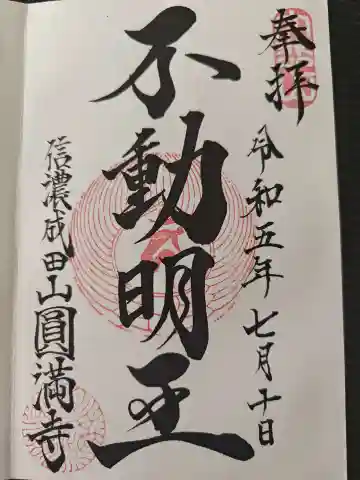 奉拝
令和五年七月十日
不動明王
信濃成田山圓満寺